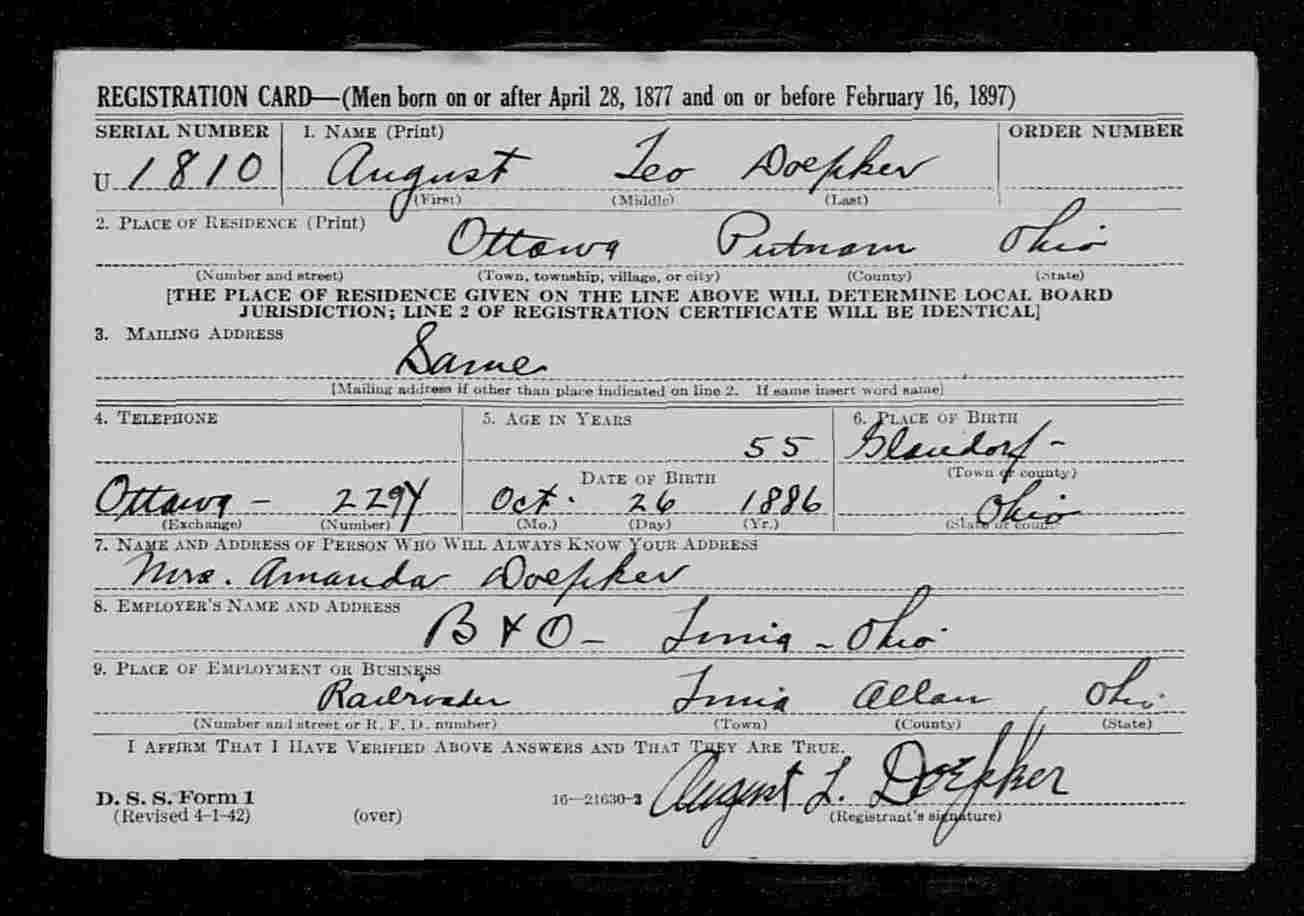 REGISTRATION CARD—(Men born on or after April 28, 1877 and on or before February 16, 1897)
SERIAL NUMBER 1. NAME (Print) ORDER NUMBER
U 1810 August Leo Doepker
(First) (Middle) (Last)
2. PLACE OF RESIDENCE (Print)
Ottawa Putnam Ohio
(Number and street) (Town, township, village, or city) (County) (State)
[THE PLACE OF RESIDENCE GIVEN ON THE LINE ABOVE WILL DETERMINE LOCAL BOARD
JURISDICTION; LINE 2 OF REGISTRATION CERTIFICATE WILL BE IDENTICAL]
3. MAILING ADDRESS
Same
[Mailing address if other than place indicated on line 2. If same insert word same]
4. TELEPHONE 5. AGE IN YEARS 6. PLACE OF BIRTH
55 Glandorf -
DATE OF BIRTH (Town or county)
Ottawa - 229Y Oct. 26 1886 Ohio
(Exchange) (Number) (Mo.) (Day) (Yr.) (State or country)
7. NAME AND ADDRESS OF PERSON WHO WILL ALWAYS KNOW YOUR ADDRESS
Mrs. Amanda Doepker
8. EMPLOYER'S NAME AND ADDRESS
B & O - Lima - Ohio
9. PLACE OF EMPLOYMENT OR BUSINESS
Railroader Lima Allan Ohio
(Number and street or R. F. D. number) (Town) (County) (State)
I AFFIRM THAT I HAVE VERIFIED ABOVE ANSWERS AND THAT THEY ARE TRUE.
August L. Doepker
D. S. S. Form 1 16—21630-2
(Revised 4-1-42) (over) (Registrant's signature)